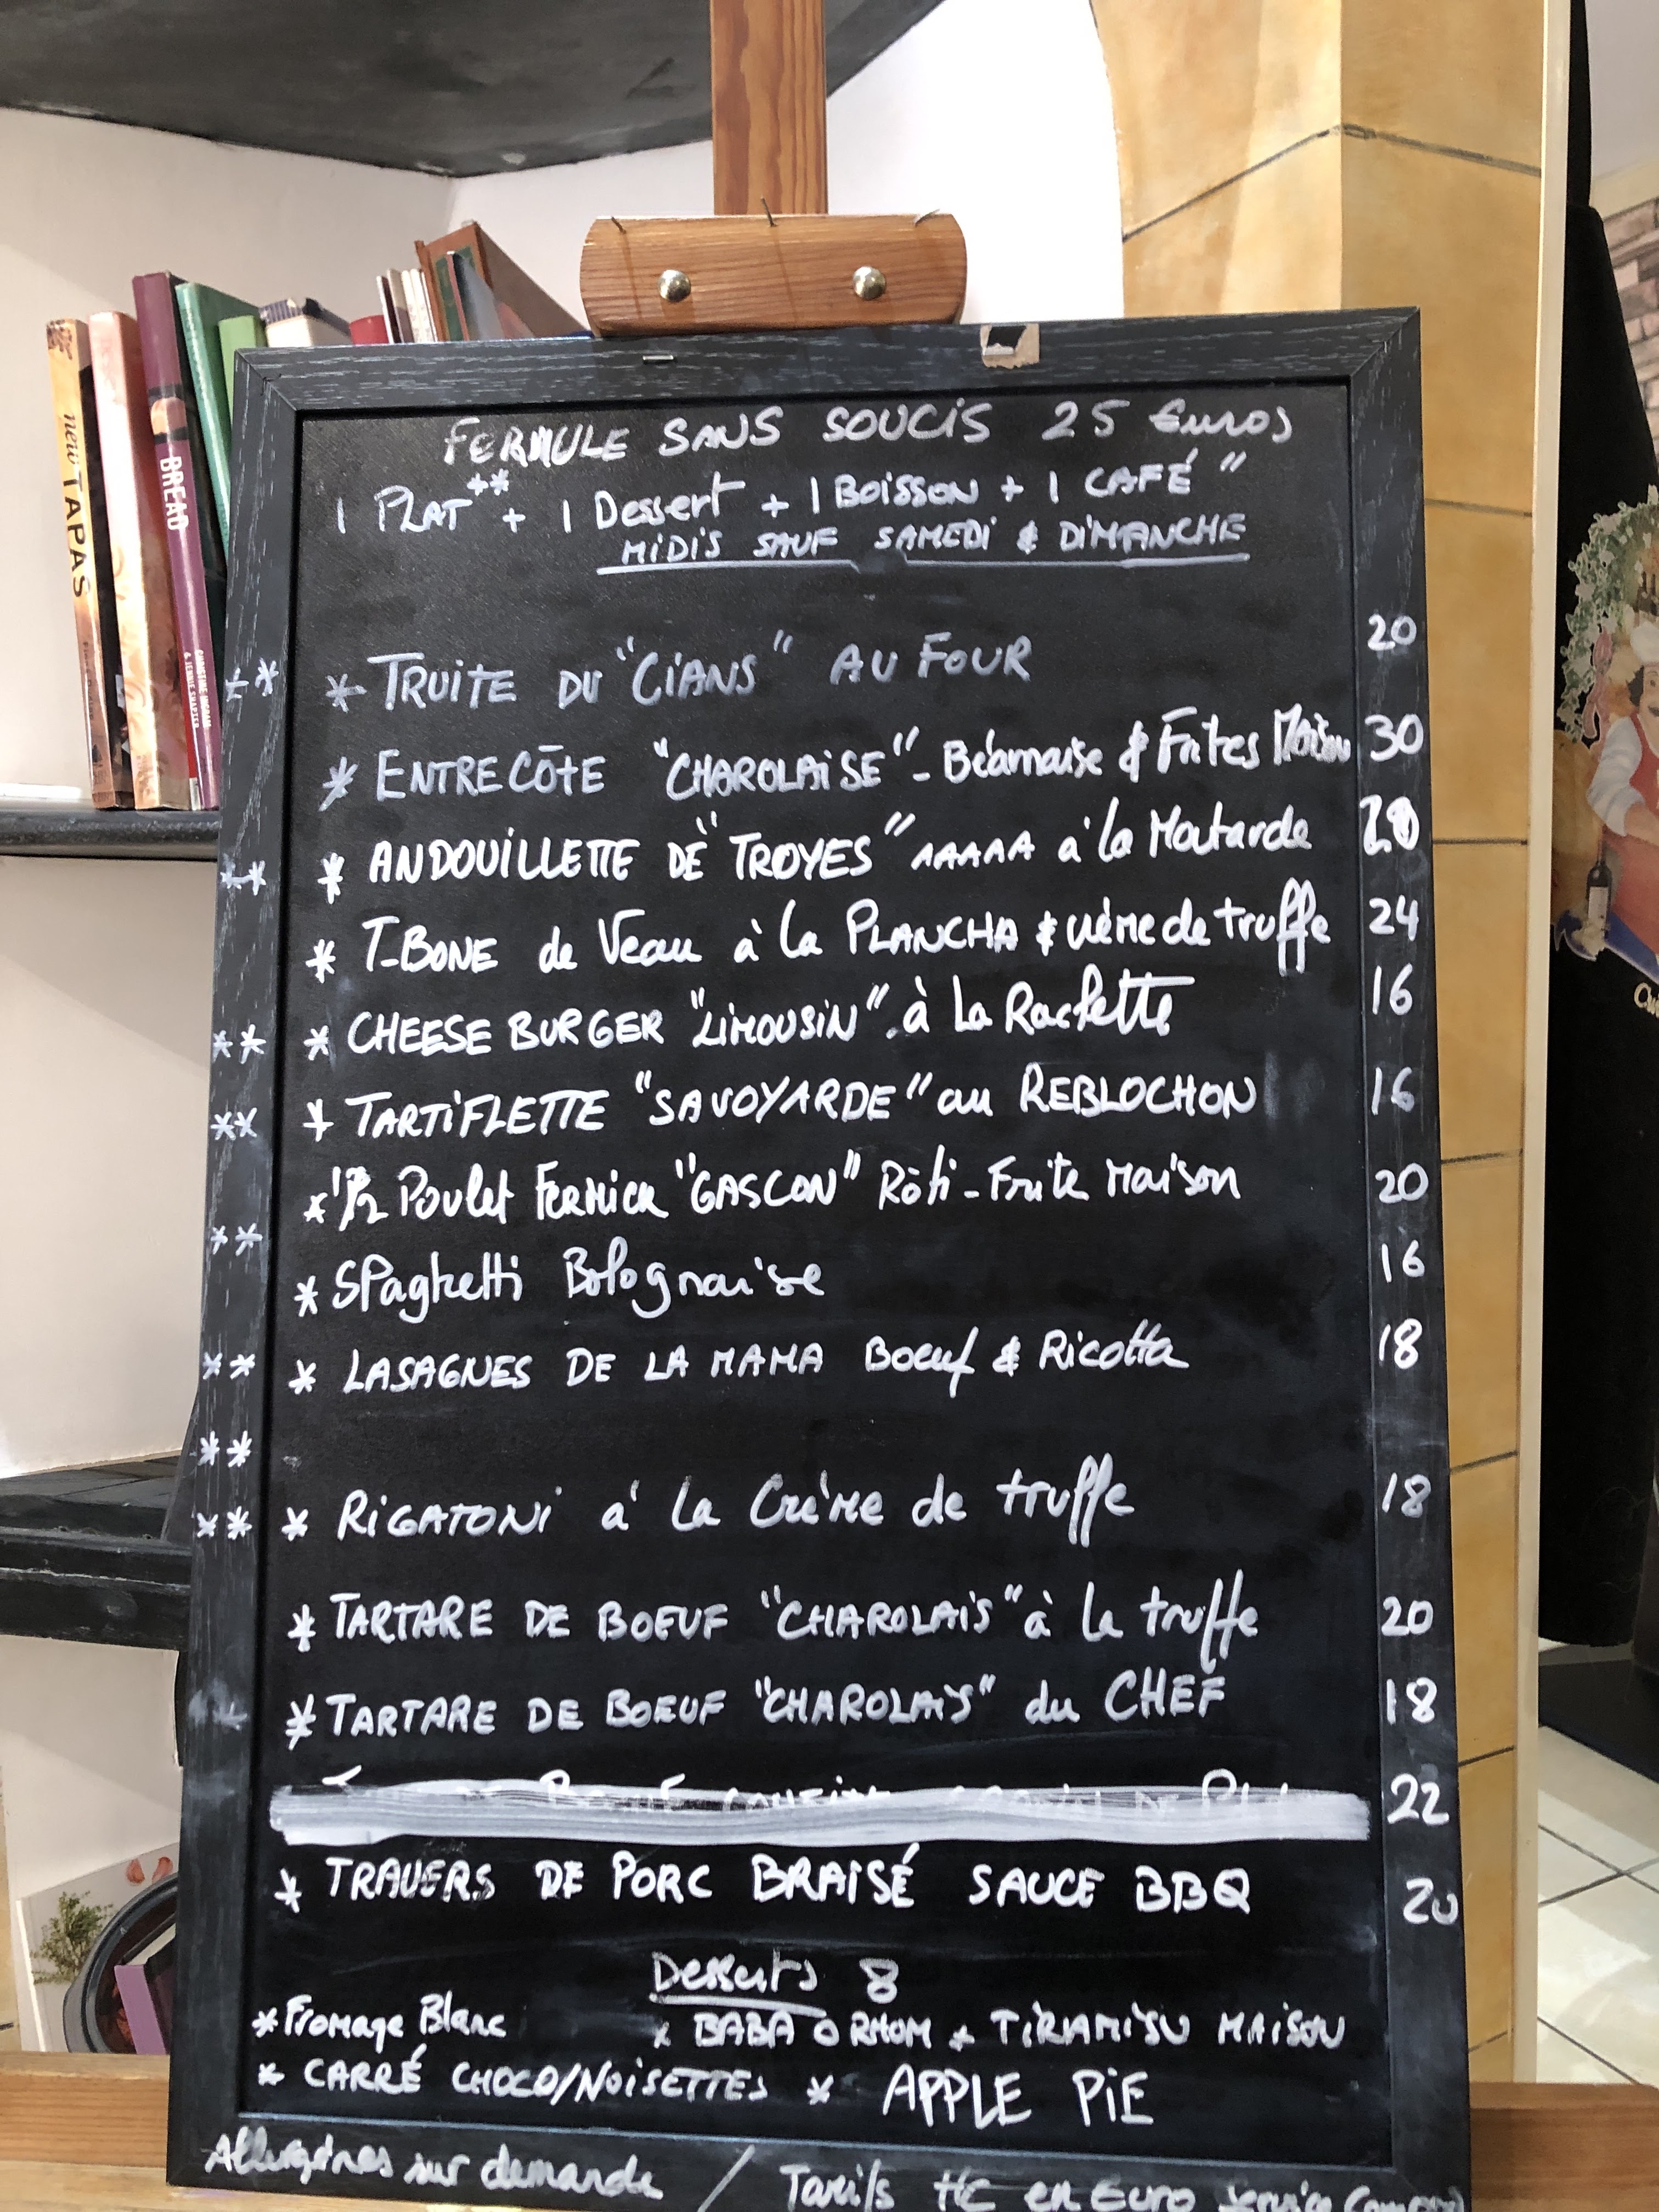 new TAPAS
BREAD
CHRISTINE INGRAM
& JENNIE SHAPTER
FERMULE SANS SOUCIS 25 Euros
1 PLAT** + 1 Dessert + 1 BOISSON + 1 CAFÉ "
MIDIS SAUF SAMEDI & DIMANCHE
** * TRUITE DU "CIANS" AU FOUR 20
* ENTRECÔTE "CHAROLAISE" - Béarnaise & Frites Maison 30
** * ANDOUILLETTE DE "TROYES" AAAAA à la Moutarde
* T-BONE de Veau à la PLANCHA & crème de truffe 24
** * CHEESE BURGER "LIMOUSIN" à la Raclette 16
** * TARTIFLETTE "SAVOYARDE" au REBLOCHON 16
** * 1/2 Poulet Fermier "GASCON" Rôti - Frite Maison 20
* Spaghetti Bolognaise 16
** * LASAGNES DE LA MAMA Boeuf & Ricotta 18
**
** * RIGATONI à la Crème de truffe 18
* TARTARE DE BOEUF "CHAROLAIS" à la truffe 20
* TARTARE DE BOEUF "CHAROLAIS" du CHEF 18
22
* TRAVERS DE PORC BRAISÉ SAUCE BBQ 20
Desserts 8
* Fromage Blanc * BABA O RHUM * TIRAMISU MAISON
* CARRÉ CHOCO/NOISETTES * APPLE PIE
Allergènes sur demande / Tarifs TTC en Euro Service